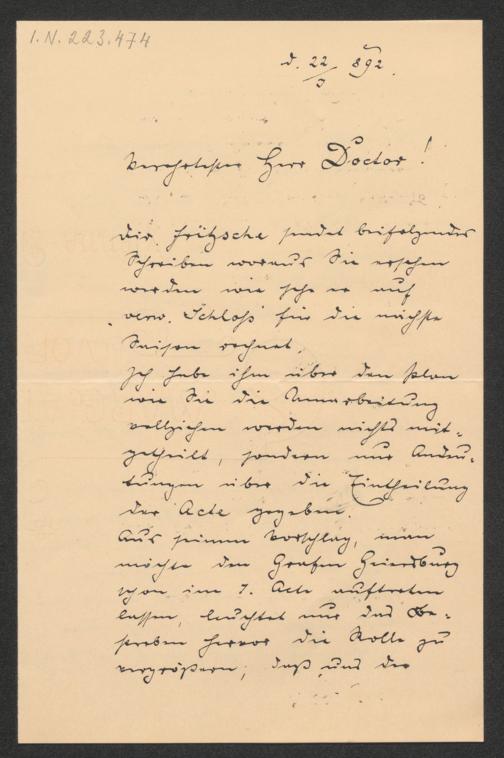 I.N. 223.474
d. 22/3 892.
Verehrtester Herr Doctor!
Dir. Fritzsche sendet beifolgendes
Schreiben woraus Sie ersehen
werden wie sehr er auf
"verw. Schloß" für die nächste
Saison rechnet.
Ich habe ihm über den Plan
wie Sie die Umarbeitung
vollziehen werden nichts mit-
getheilt, sondern nur Andeu-
tungen über die Eintheilung
der Acte gegeben.
Aus seinem Vorschlag, man
möchte den Grafen Geiersburg
schon im 1. Acte auftreten
lassen, leuchtet nur das Be-
streben hervor die Rolle zu
vergrößern; daß uns der